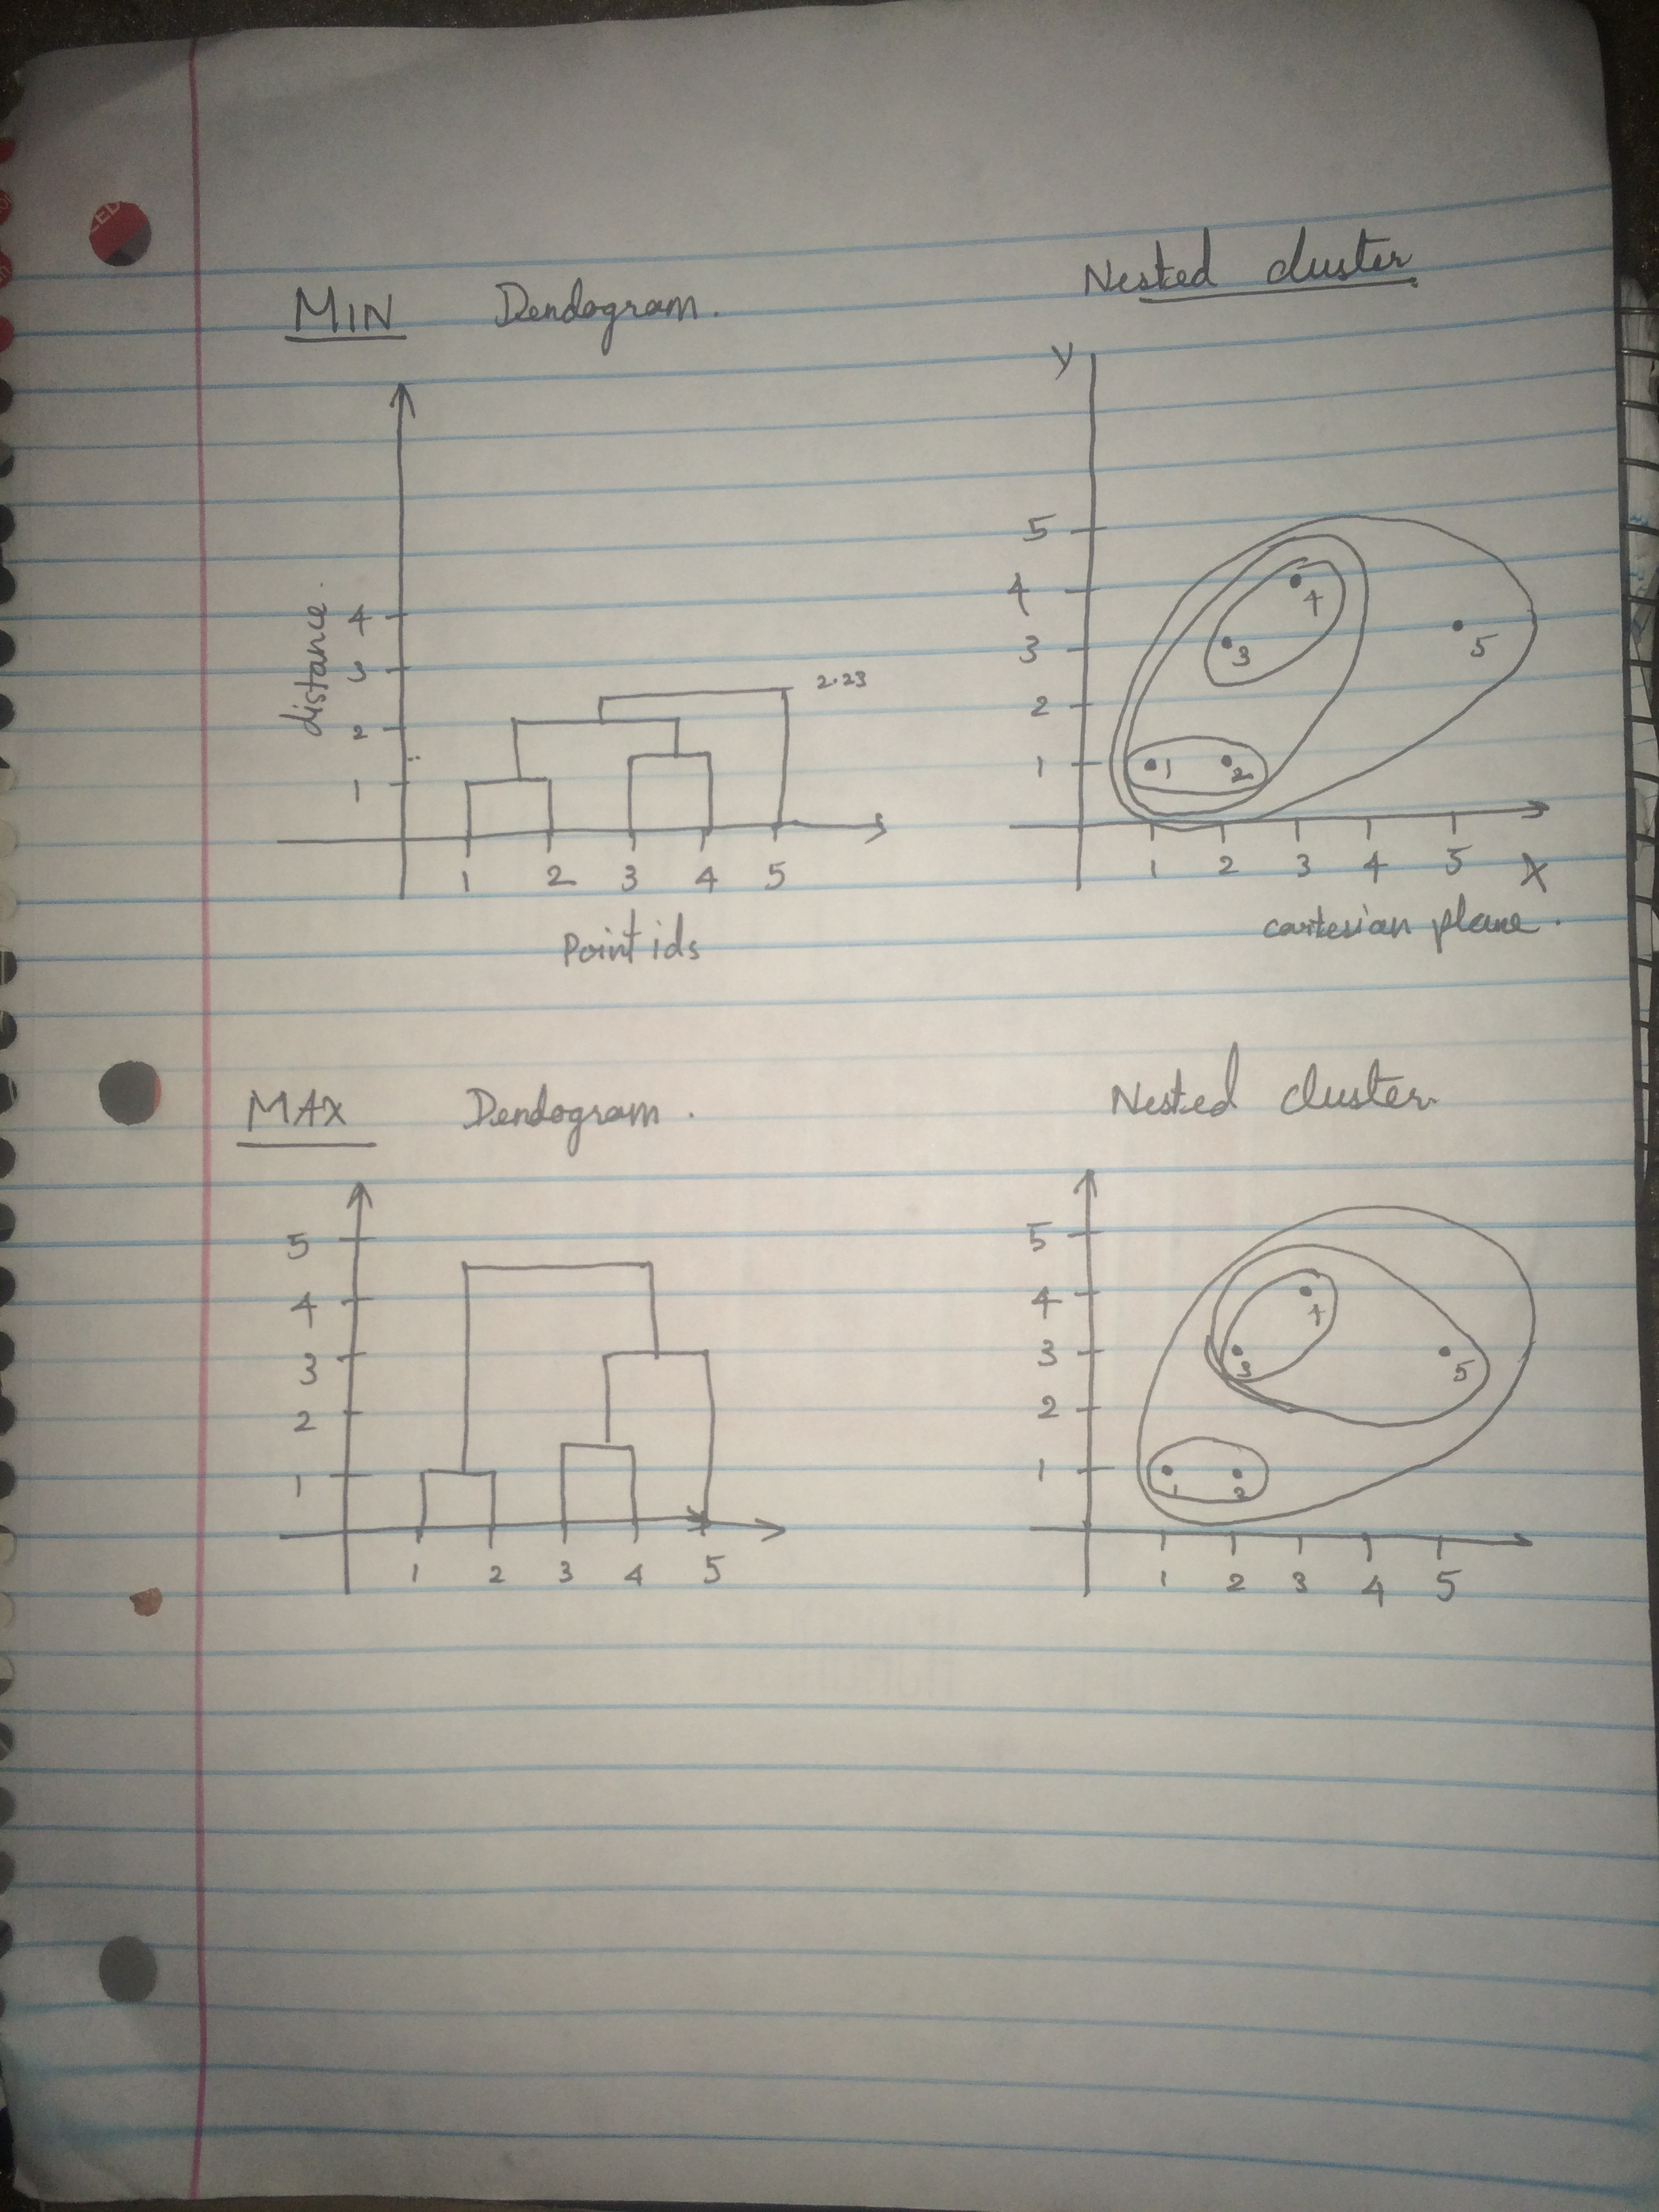 MIN Dendogram.
Nested cluster
distance.
4
3
2
1
2.23
1 2 3 4 5
Point ids
Y
5
4
3
2
1
4
3
5
1 2
1 2 3 4 5 X
cartesian plane.
MAX Dendogram.
Nested cluster
5
4
3
2
1
1 2 3 4 5
5
4
3
2
1
4
3
5
1 2
1 2 3 4 5